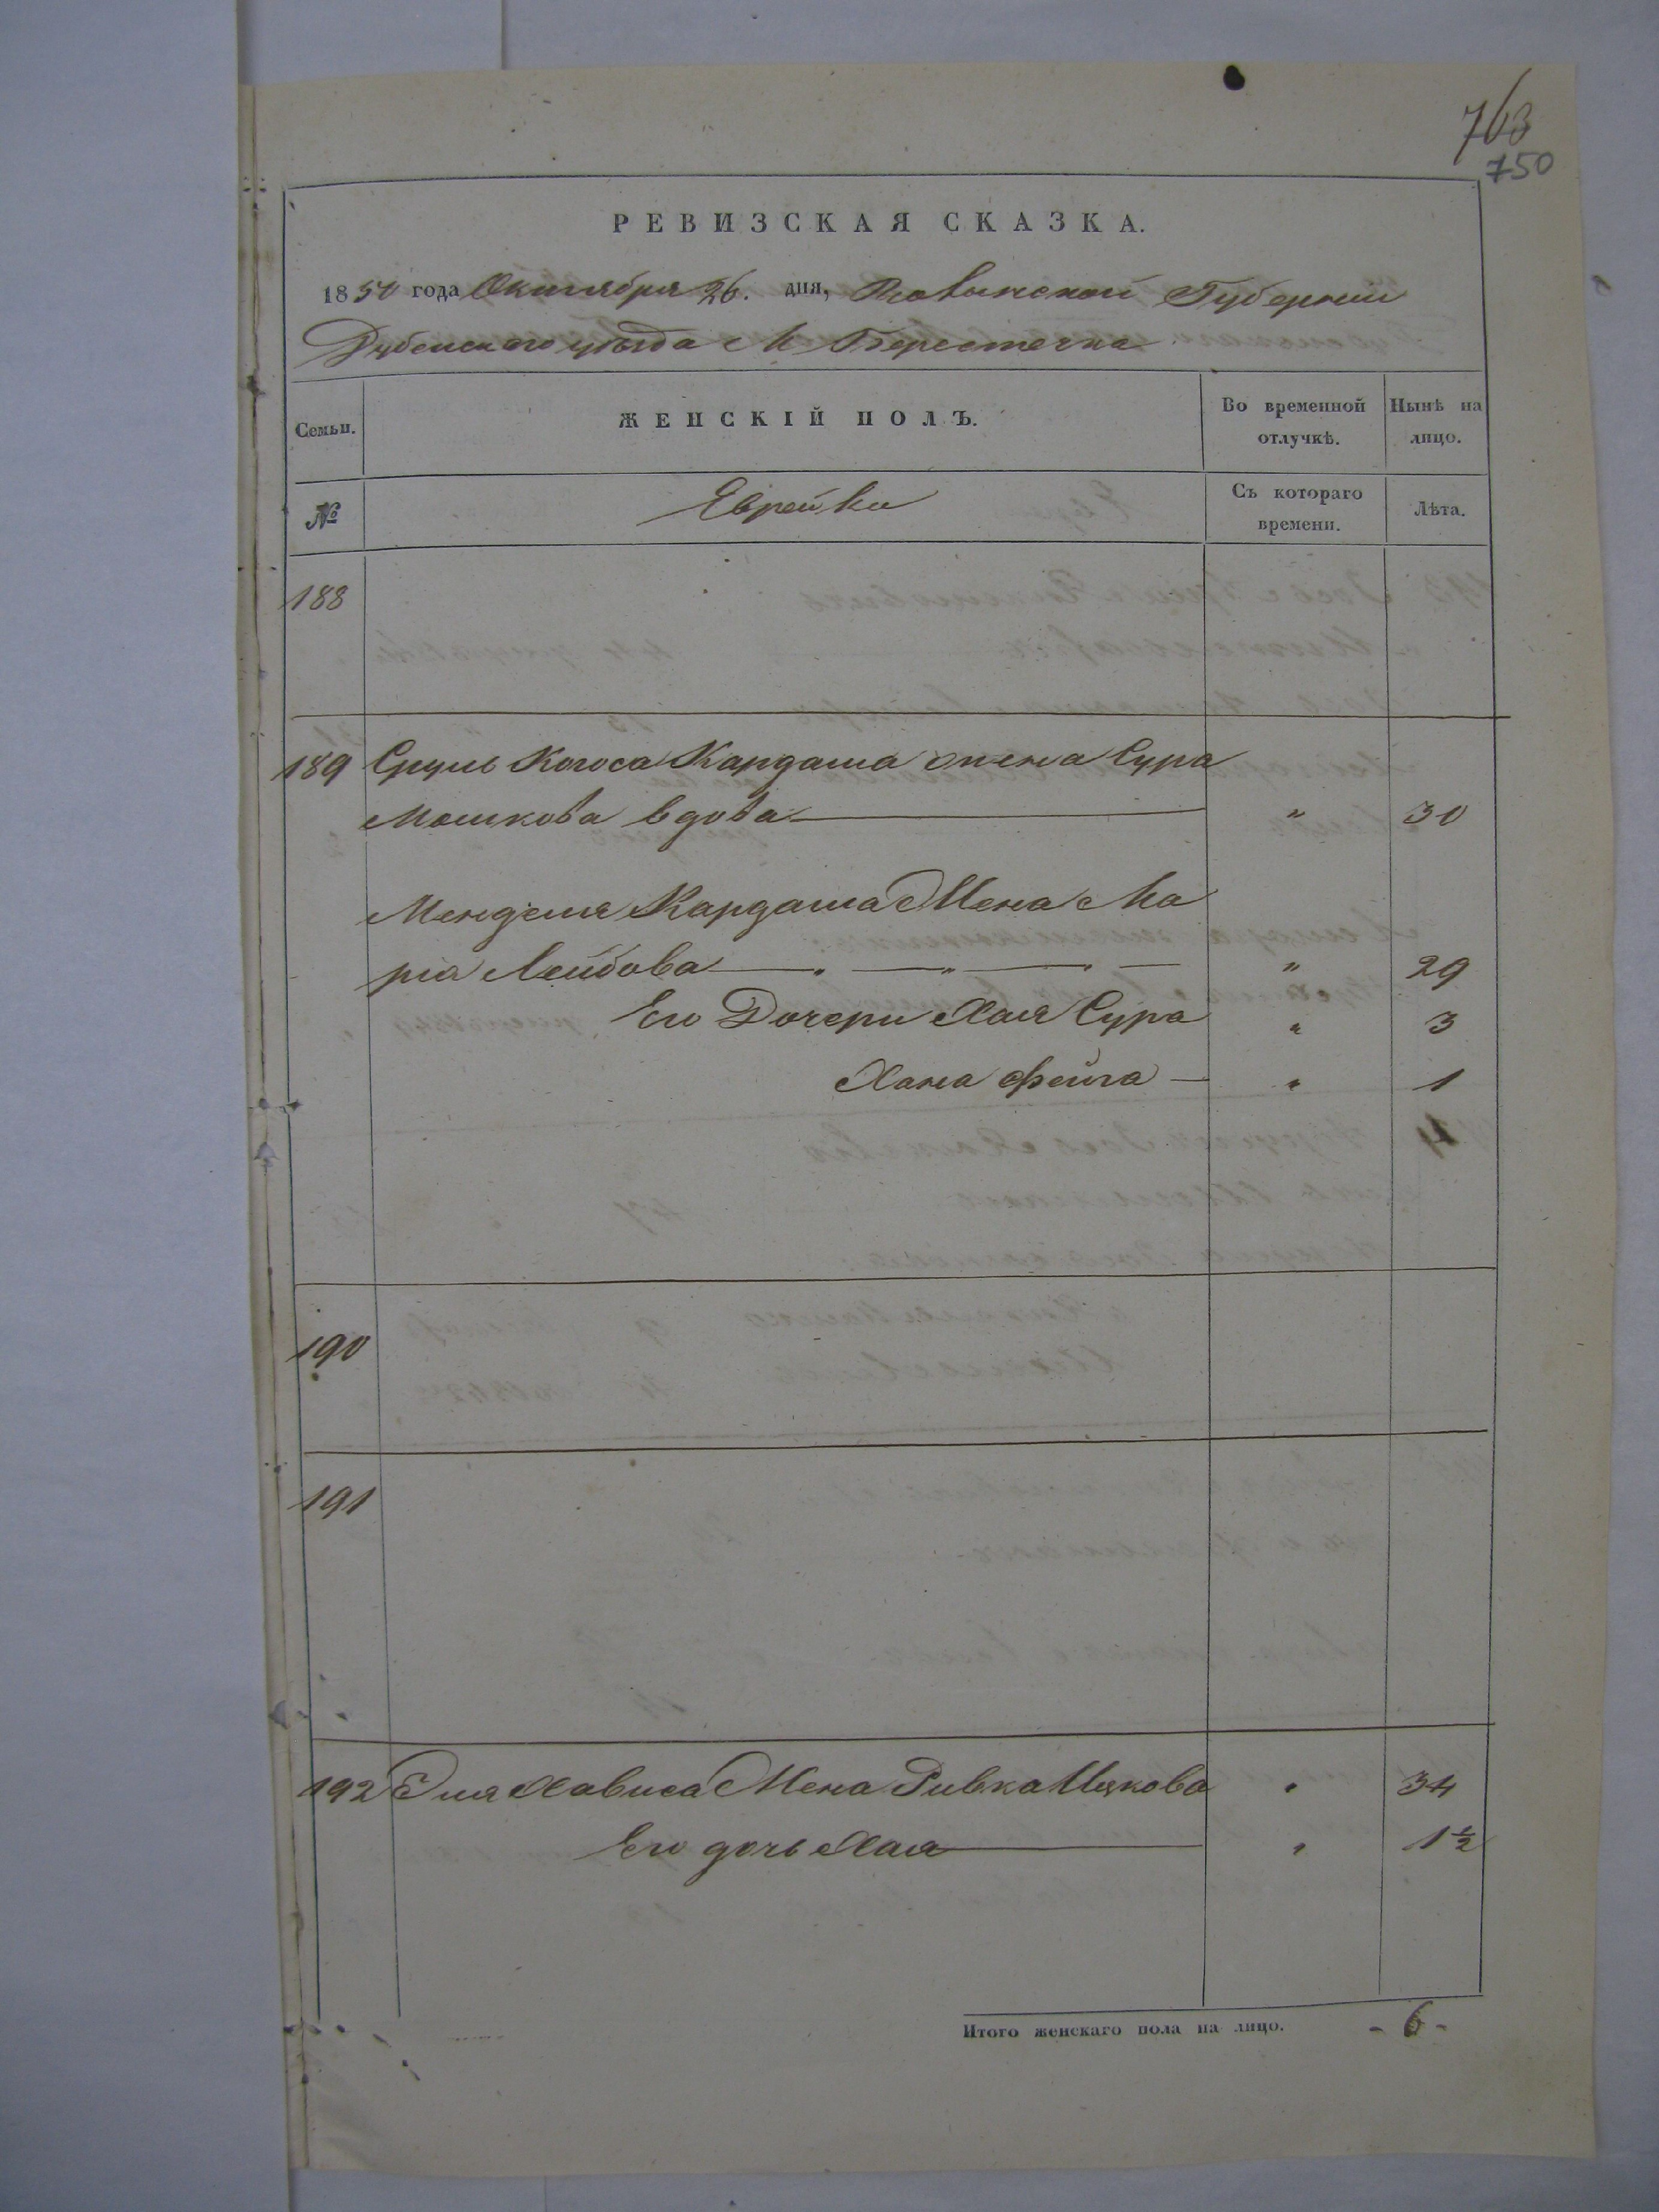 763
750
РЕВИЗСКАЯ СКАЗКА.
1850 года Октября 26. дня, Волынской Губернии
Дубенского уѣзда М Берестечка
Семьи.
ЖЕНСКІЙ ПОЛЪ.
Во временной отлучкѣ.
Нынѣ на лицо.
№
Еврейки
Съ котораго времени.
Лѣта.
188
189 Сруль Когоса Кардаша жена Сура
Мошкова вдова — " 30
Менделя Кардаша Жена Ма
рія Лейбова — " — " — " — " 29
Его Дочери Хая Сура " 3
Хана Фейга — " 1
4
190
191
192 Эля Хависа Жена Ривка Ицкова " 34
Его дочь Хая — " 1 1/2
Итого женскаго пола на лицо. - 6 -